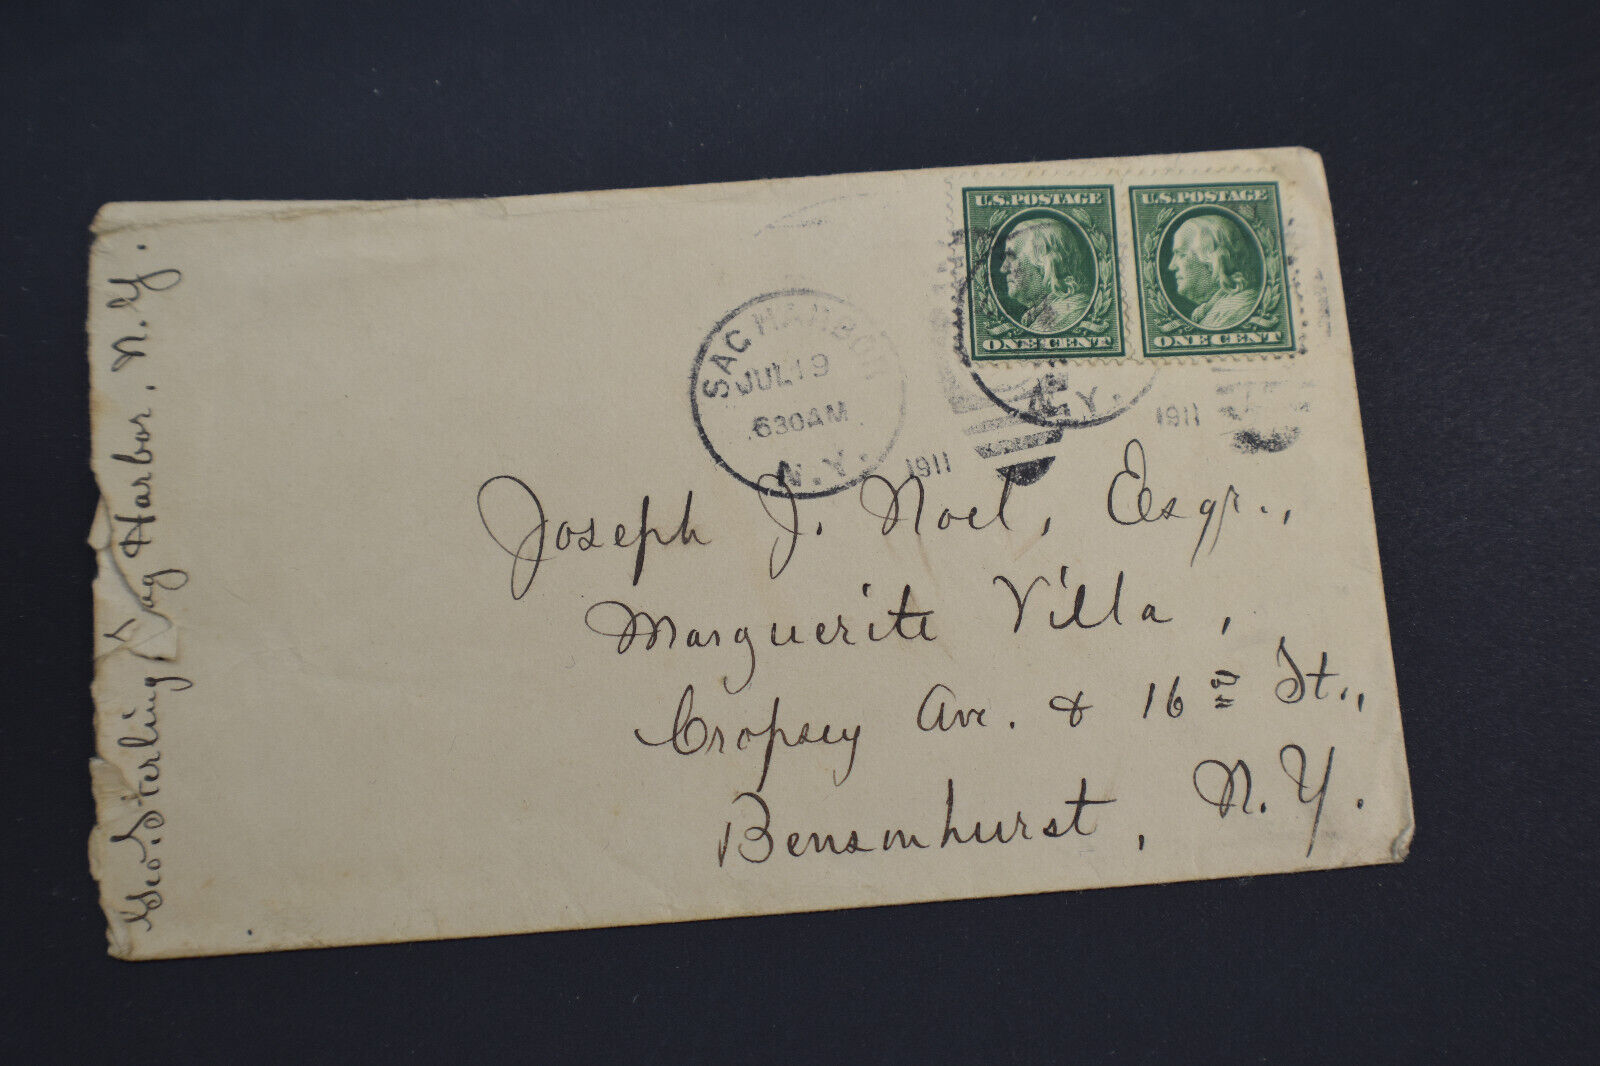 Geo. Sterling, Sag Harbor, N.Y.
U.S. POSTAGE
ONE CENT
U.S. POSTAGE
ONE CENT
SAG HARBOR
JUL 19
630 AM
N.Y.
1911
N.Y.
1911
Joseph J. Noel, Esqr.,
Marguerite Villa,
Cropsey Ave. & 16th St.,
Bensonhurst, N.Y.